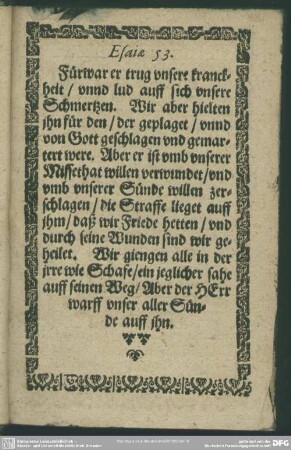 Esaiæ 53.
Fürwar er trug vnsere kranck-
heit / vnnd lud auff sich vnsere
Schmertzen. Wir aber hielten
jhn für den / der geplaget / vnnd
von Gott geschlagen vnd gemar-
tert were. Aber er ist vmb vnserer
Missethat willen verwundet / vnd
vmb vnserer Sünde willen zer-
schlagen / die Straffe lieget auff
jhm / daß wir Friede hetten / vnd
durch seine Wunden sind wir ge-
heilet. Wir giengen alle in der
jrre wie Schafe / ein jeglicher sahe
auff seinen Weg / Aber der HErr
warff vnser aller Sün-
de auff jhn.
DFG